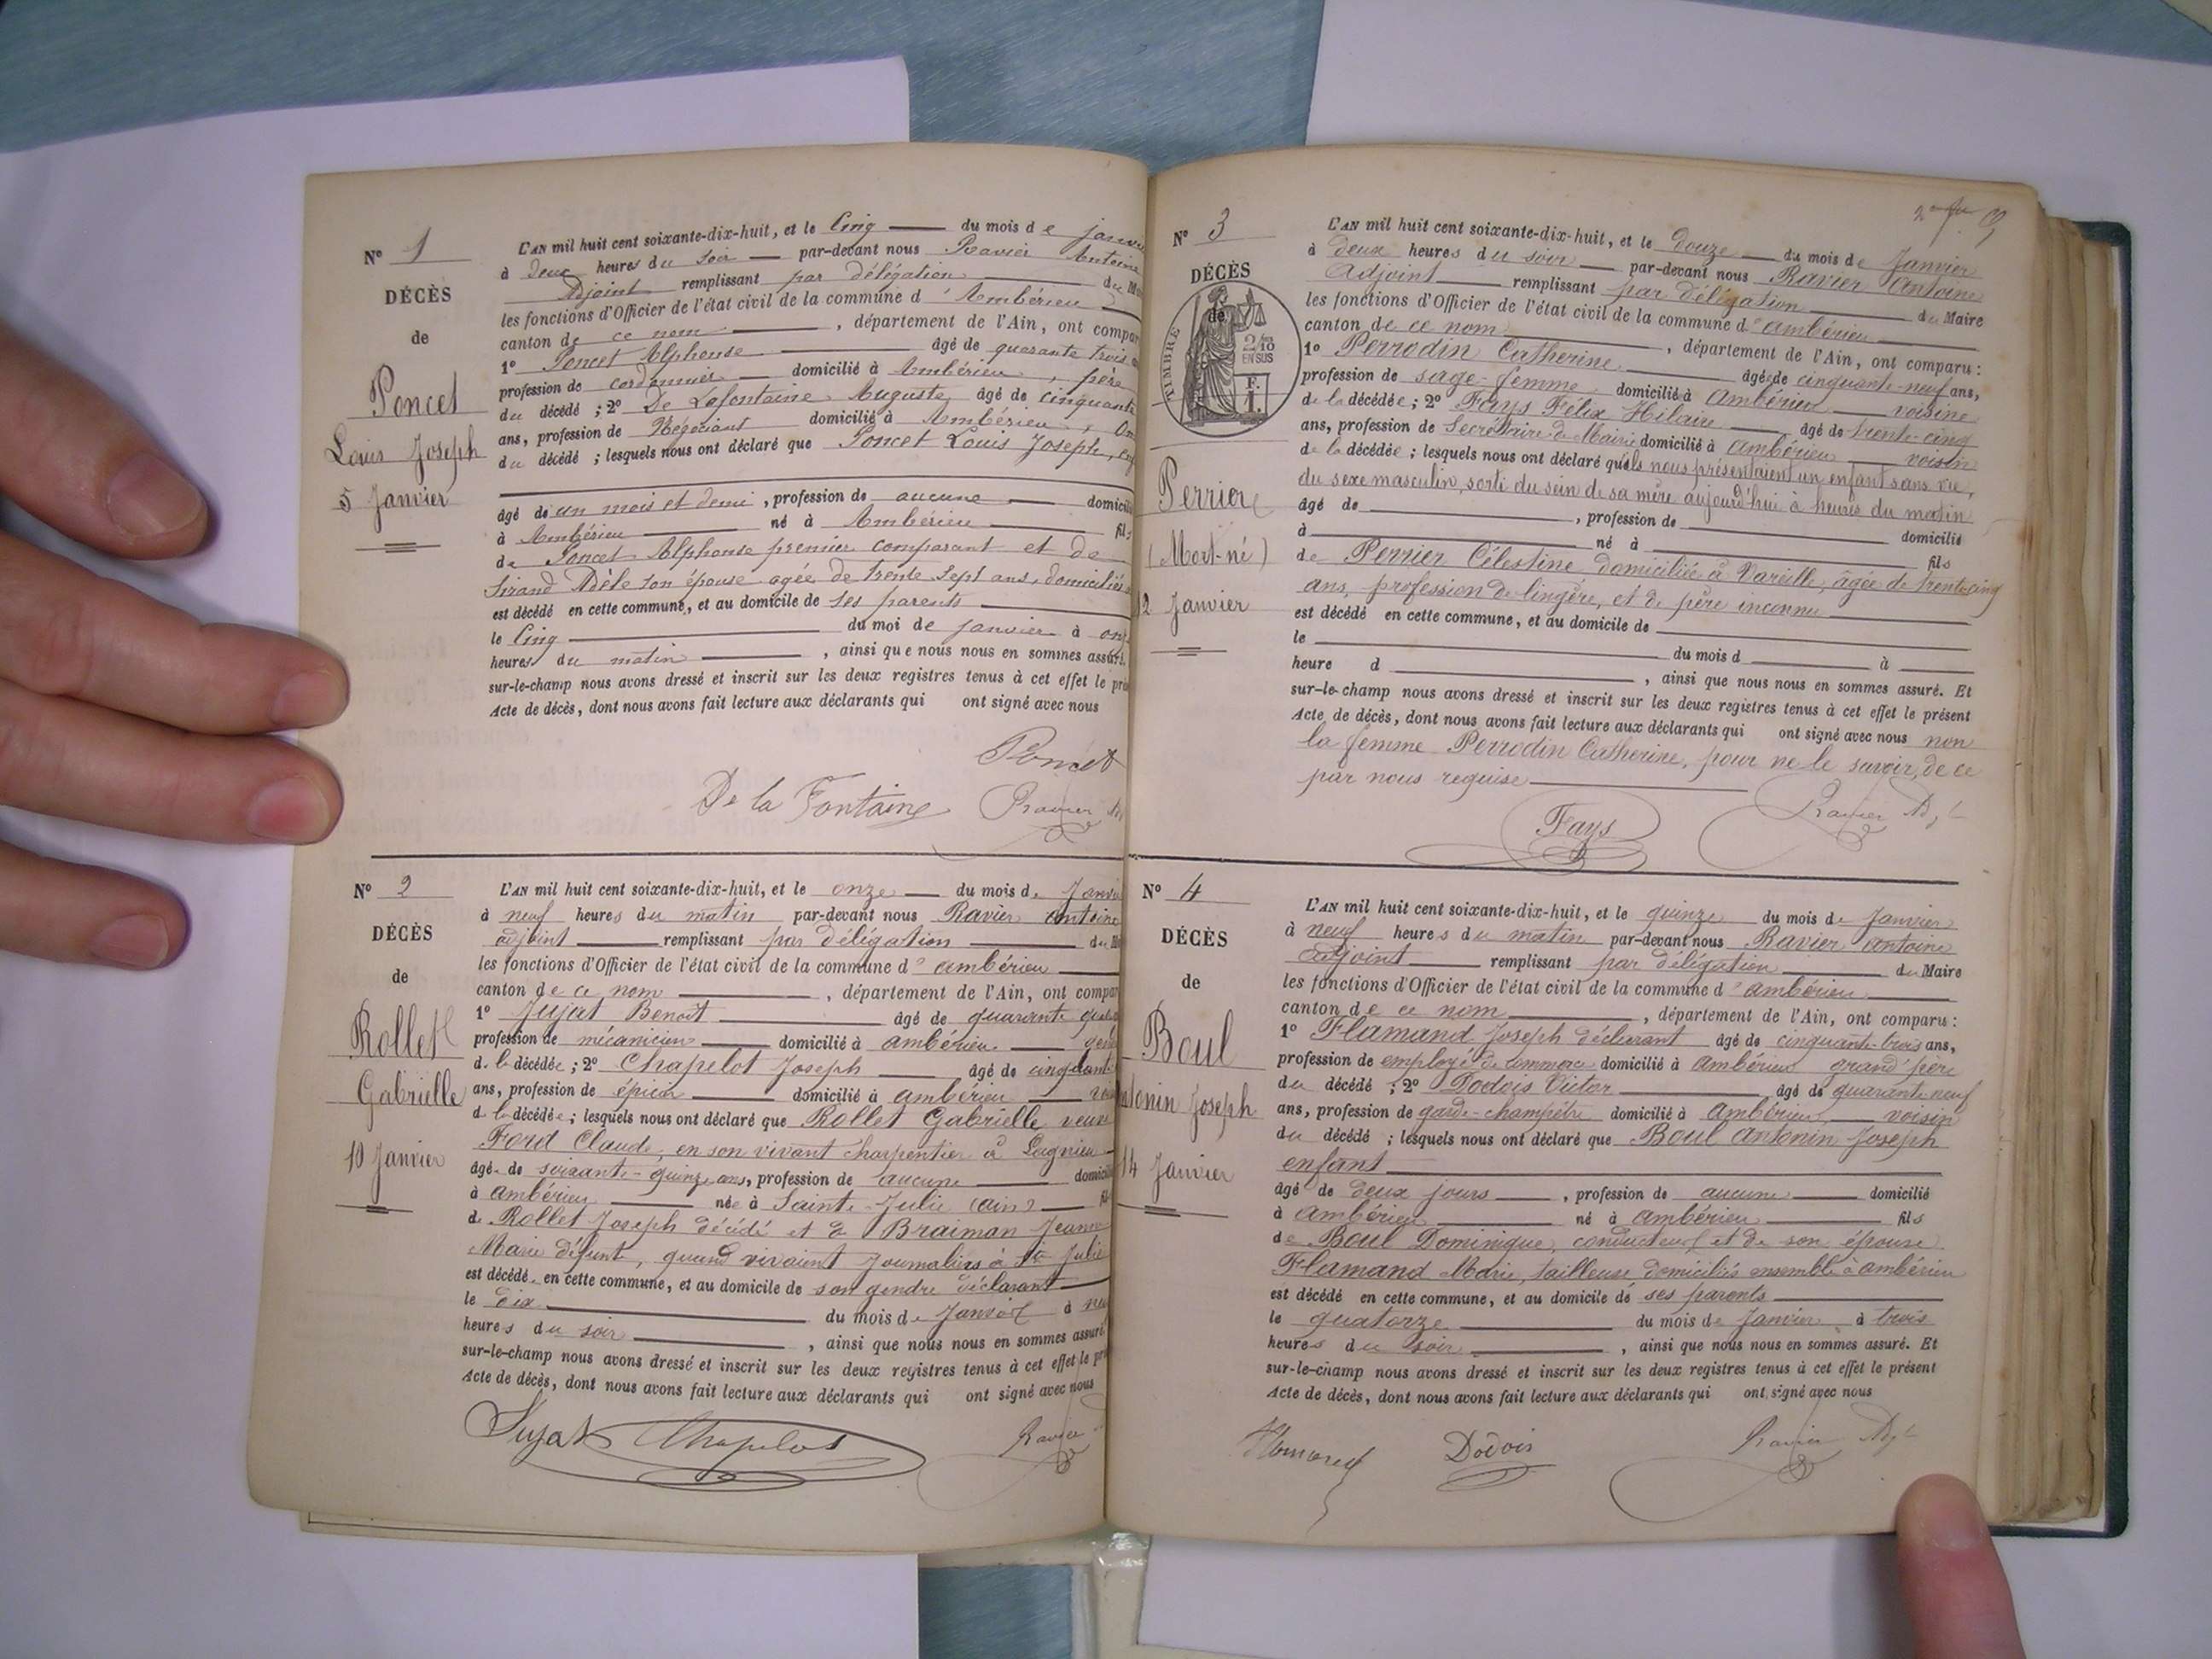 N° 1
DÉCÈS
de
Poncet
Louis Joseph
5 Janvier
L'AN mil huit cent soixante-dix-huit, et le Cinq du mois de janvi
à deux heures du soir par-devant nous Ravier Antoine
Adjoint remplissant par délégation du M
les fonctions d'Officier de l'état civil de la commune d'Ambérieu
canton de ce nom, département de l'Ain, ont compar
1° Poncet Alphonse âgé de quarante trois
profession de cordonnier domicilié à Ambérieu, père
du décédé ; 2° De Lafontaine Auguste, âgé de cinquante
ans, profession de Négociant domicilié à Ambérieu,
du décédé ; lesquels nous ont déclaré que Poncet Louis Joseph,
âgé de un mois et demi, profession de aucune domicili
à Ambérieu né à Ambérieu fils
de Poncet Alphonse premier comparant et de
Sirand Adèle son épouse agée de trente sept ans, domiciliés
est décédé en cette commune, et au domicile de ses parents
le Cinq du moi de janvier à onz
heures du matin, ainsi que nous nous en sommes assuré.
sur-le-champ nous avons dressé et inscrit sur les deux registres tenus à cet effet le pré
Acte de décès, dont nous avons fait lecture aux déclarants qui ont signé avec nous
Poncet
De la Fontaine Ravier
N° 2
DÉCÈS
de
Rollet
Gabrielle
10 Janvier
L'AN mil huit cent soixante-dix-huit, et le onze du mois de Janvi
à neuf heures du matin par-devant nous Ravier antoine
adjoint remplissant par délégation du M
les fonctions d'Officier de l'état civil de la commune d'ambérieu
canton de ce nom, département de l'Ain, ont compar
1° Jujat Benoît âgé de quarante
profession de mécanicien domicilié à ambérieu gend
de la décédée ; 2° Chapelot Joseph âgé de cinquante
ans, profession de épicier domicilié à ambérieu voi
de la décédée ; lesquels nous ont déclaré que Rollet Gabrielle veuve
Ford Claude, en son vivant charpentier à Lagnieu
âgée de soixante-quinze ans, profession de aucune domicili
à ambérieu née à Sainte-Julie (ain) fil
de Rollet Joseph décédé et de Braiman Jeanne
Marie défunte, quand vivaient Journaliers à Ste Julie
est décédée en cette commune, et au domicile de son gendre déclarant
le dix du mois de Janvier à neu
heures du soir, ainsi que nous nous en sommes assuré
sur-le-champ nous avons dressé et inscrit sur les deux registres tenus à cet effet le pré
Acte de décès, dont nous avons fait lecture aux déclarants qui ont signé avec nous
Jujat Chapelot Ravier
N° 3
DÉCÈS
de
TIMBRE
2/10
EN SUS
F.
I.
Perrier
(Mort-né)
12 Janvier
L'AN mil huit cent soixante-dix-huit, et le Douze du mois de Janvier
à deux heures du soir par-devant nous Ravier Antoine
Adjoint remplissant par délégation du Maire
les fonctions d'Officier de l'état civil de la commune d'ambérieu
canton de ce nom, département de l'Ain, ont comparu :
1° Perrodin Catherine âgée de cinquante-neuf ans,
profession de sage-femme domicilié à Ambérieu voisine
de la décédée ; 2° Fays Félix Hilaire âgé de trente-cinq
ans, profession de Secrétaire de Mairie domicilié à Ambérieu voisin
de la décédée ; lesquels nous ont déclaré qu'ils nous présentaient un enfant sans vie,
du sexe masculin, sorti du sein de sa mère aujourd'hui à heures du matin
âgé de, profession de domicilié
à né à fils
de Perrier Célestine domiciliée à Vareille, âgée de trente-cinq
ans, profession de lingère, et de père inconnu
est décédé en cette commune, et au domicile de
le du mois d à
heure d, ainsi que nous nous en sommes assuré. Et
sur-le-champ nous avons dressé et inscrit sur les deux registres tenus à cet effet le présent
Acte de décès, dont nous avons fait lecture aux déclarants qui ont signé avec nous non
la femme Perrodin Catherine, pour ne le savoir, de ce
par nous requise
Fays Ravier Adjt
N° 4
DÉCÈS
de
Boul
tonin Joseph
14 Janvier
L'AN mil huit cent soixante-dix-huit, et le quinze du mois de Janvier
à neuf heures du matin par-devant nous Ravier antoine
adjoint remplissant par délégation du Maire
les fonctions d'Officier de l'état civil de la commune d'ambérieu
canton de ce nom, département de l'Ain, ont comparu :
1° Flamand Joseph déclarant âgé de cinquante-trois ans,
profession de employé de commerce domicilié à Ambérieu grand'père
du décédé ; 2° Dodois Victor âgé de quarante-neuf
ans, profession de garde-champêtre domicilié à Ambérieu, voisin
du décédé ; lesquels nous ont déclaré que Boul Antonin Joseph
enfant
âgé de deux jours, profession de aucune domicilié
à Ambérieu né à Ambérieu fils
de Boul Dominique, conducteur et de son épouse
Flamand Marie, tailleuse domiciliés ensemble à ambérieu
est décédé en cette commune, et au domicile de ses parents
le quatorze du mois de Janvier à trois
heures du soir, ainsi que nous nous en sommes assuré. Et
sur-le-champ nous avons dressé et inscrit sur les deux registres tenus à cet effet le présent
Acte de décès, dont nous avons fait lecture aux déclarants qui ont signé avec nous
Flamand Dodois Ravier Adjt